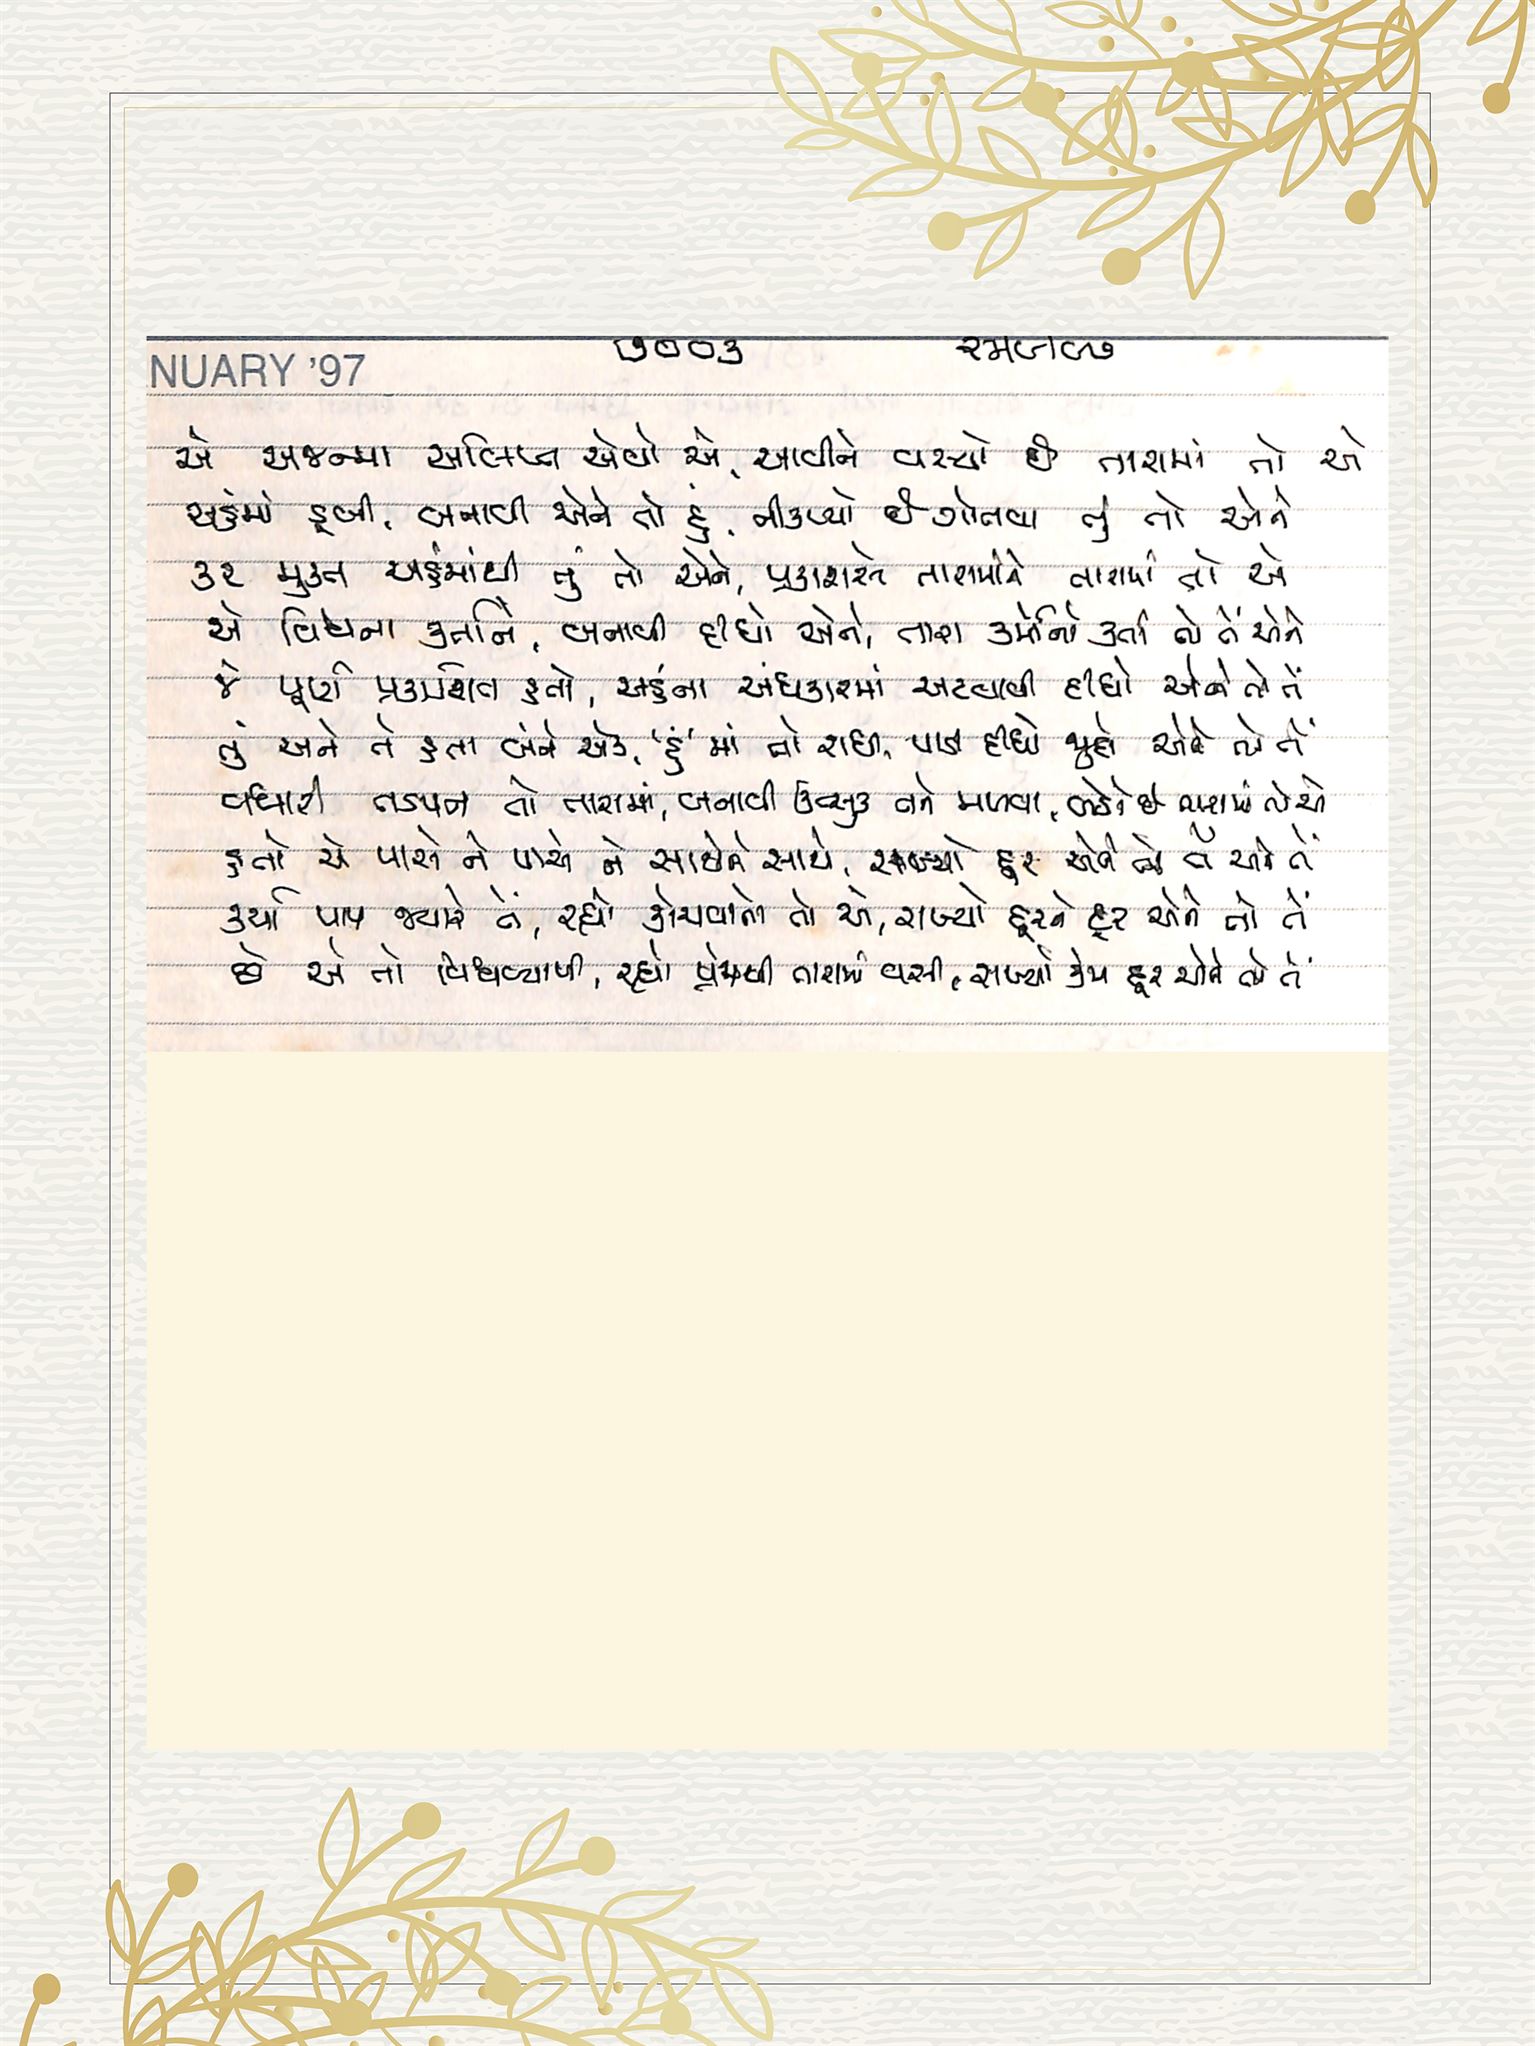 NUARY '97 ૭૦૦૩
એ અજન્મા અલિપ્ત એવો એ, આવીને વસ્યો છે તારામાં તો એ
અહંમાં ડૂબી, બનાવી એને તો હું, નીકળ્યો છે ગોતવા તું તો એને
કર મુક્ત અહંમાંથી તું તો એને, પ્રકાશશે તારામાંને તારામાં તો એ
એ વિશ્વના કર્તાને, બનાવી દીધો એને, તારા કર્મોનો કર્તા તો તેં એને
જે પૂર્ણ પ્રકાશિત હતો, અહંના અંધકારમાં અટવાવી દીધો એને તો તેં
તું અને તે હતા બંને એક, 'હું' માં તો રાચી, પાડી દીધો જુદો એને તો તેં
વધારી તડપન તો તારામાં, બનાવી ઉત્સુક તને મળવા, છે તારામાં તો એ
હતો એ પાસે ને પાસે ને સાથેને સાથે, રાખ્યો દૂર એને તો તેં
કર્યા પાપ જ્યારે તેં, રહ્યો તો એ, રાખ્યો દૂરને દૂર એને તો તેં
છે એ તો વિશ્વવ્યાપી, રહ્યો પ્રેમથી તારામાં વસી, રાખ્યો કેમ દૂર એને તો તેં